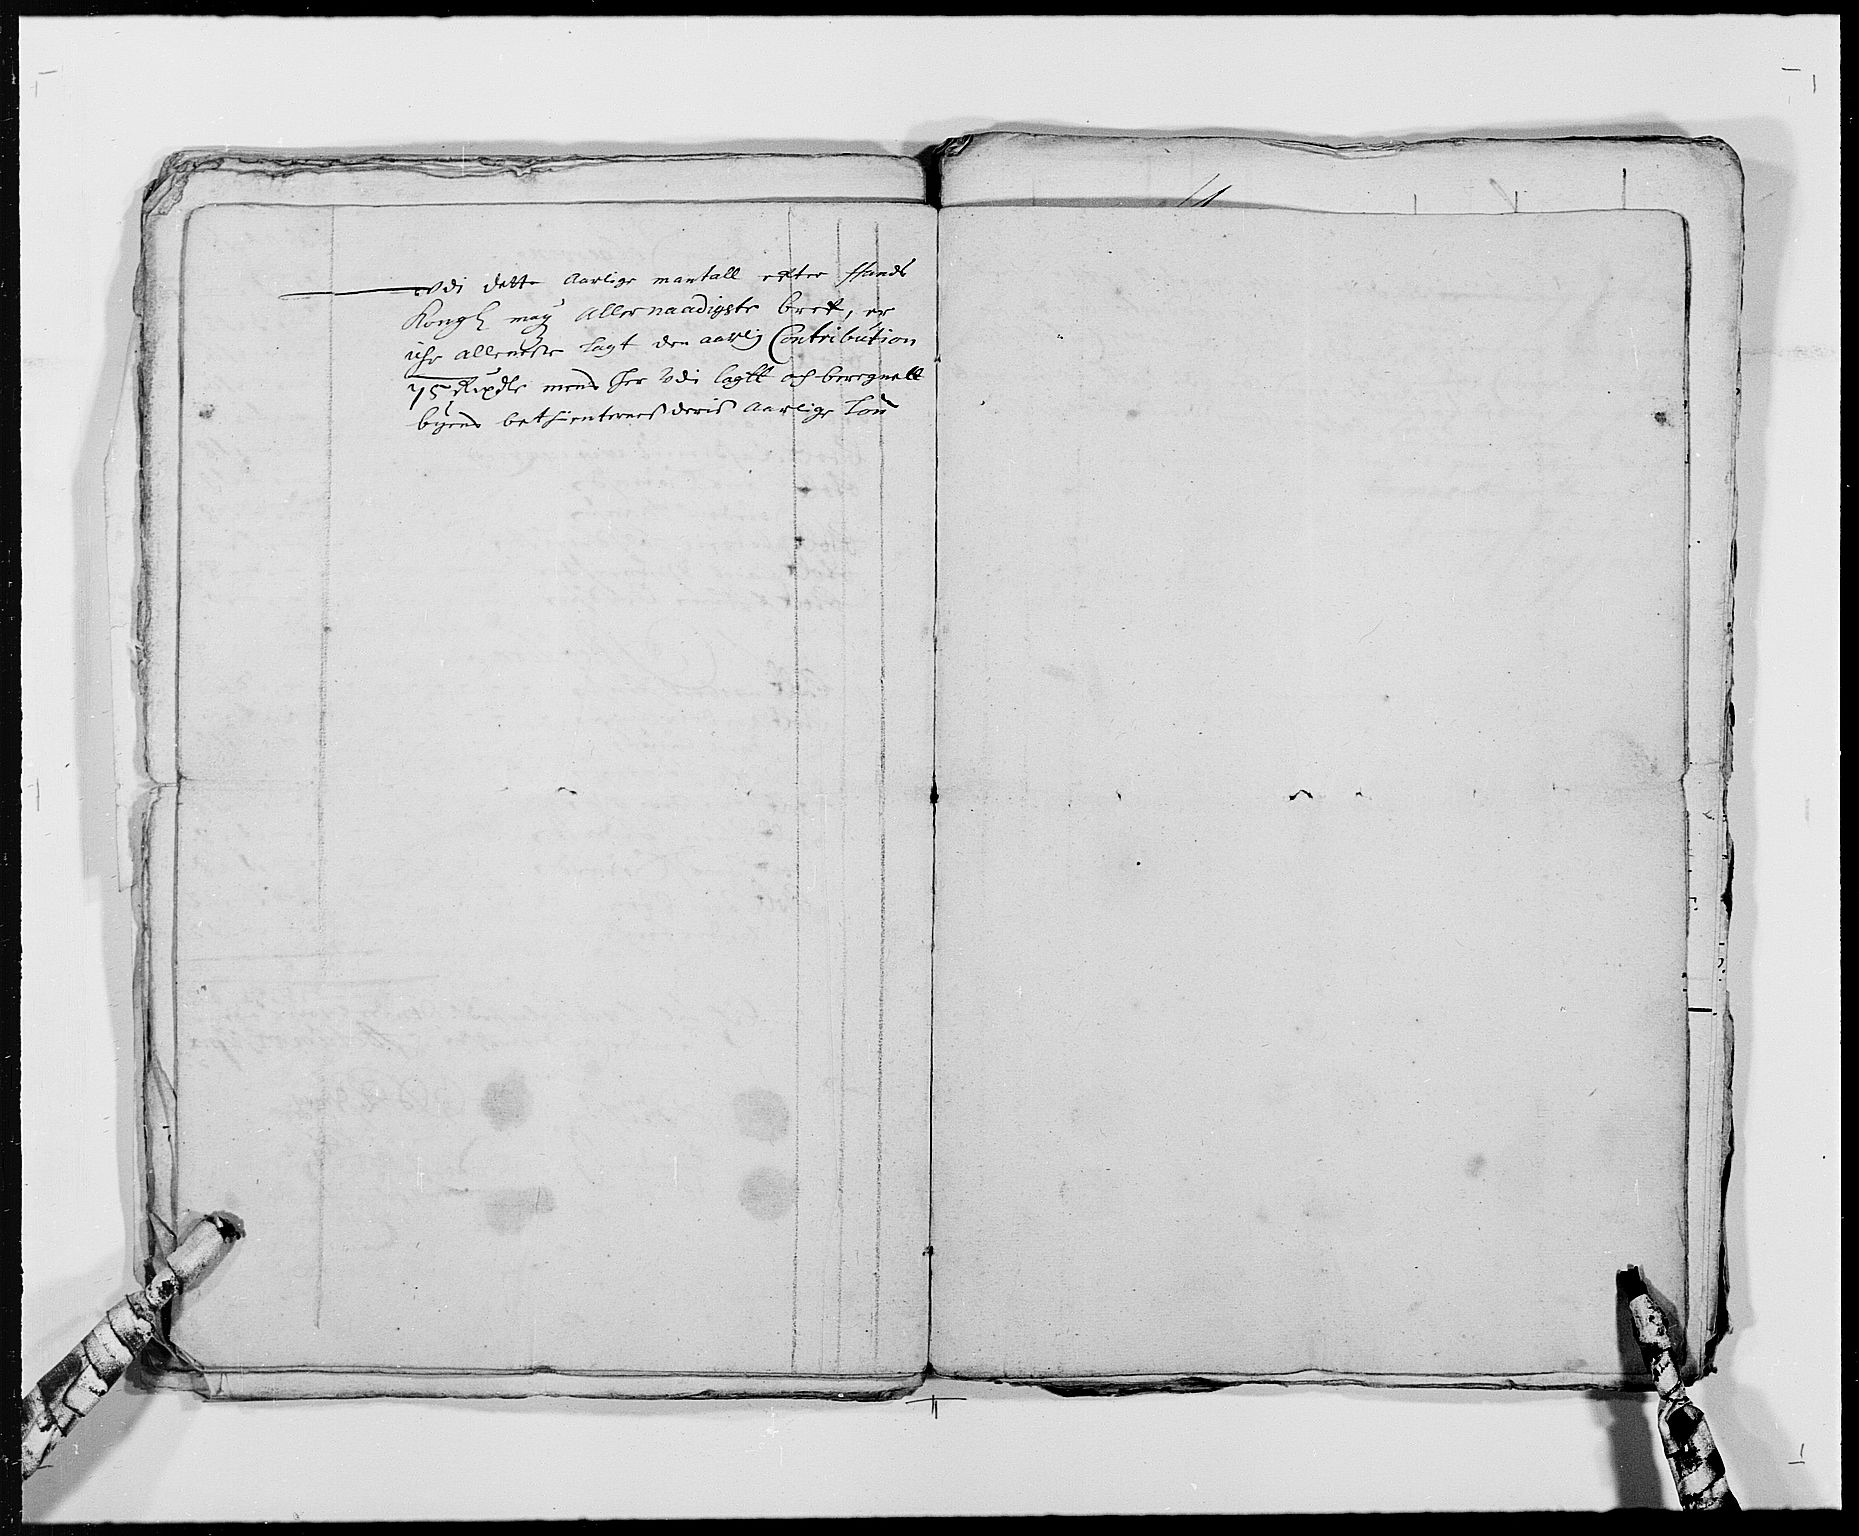 Udi dette Aarlige mantall efter Hands
Kongl may Allernaadigste bref, er
iche alleniste lagt den aarlig Contribution
75 Rixdlr mens her Udi lagtt och beregnett
byens bethienteres deris Aarlige Løn